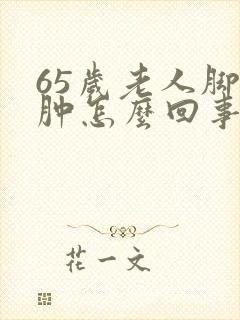 65歲老人脚
肿怎麽回事
花一文